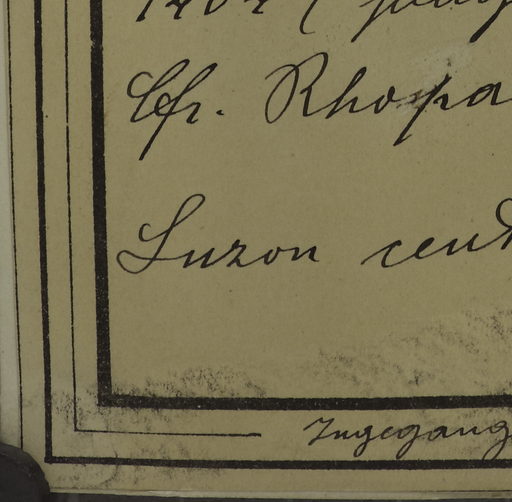 Cfr. Rhopa
Luzon cent
Zugegang